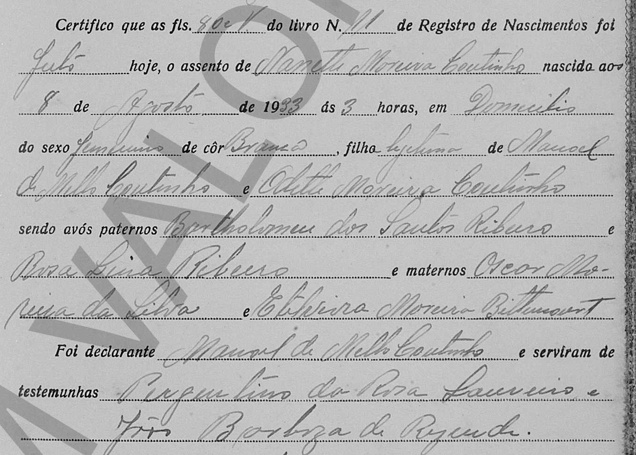 Certifico que as fls. 80 e V do livro N. 11 de Registro de Nascimentos foi
feito hoje, o assento de Nanette Moreira Coutinho nascida aos
8 de Agosto de 1933 ás 3 horas, em Domicilio
do sexo femenino de côr Branca, filha legitima de Manoel
de Mello Coutinho e Odette Moreira Coutinho
sendo avós paternos Bartholomeu dos Santos Ribeiro e
Rosa Lina Ribeiro e maternos Oscar Mo-
reira da Silva e Moreira Bittencourt
Foi declarante Manoel de Mello Coutinho e serviram de
testemunhas Pergentino da Rosa Loureiro e
João Barboza de Rezende.
VALOR